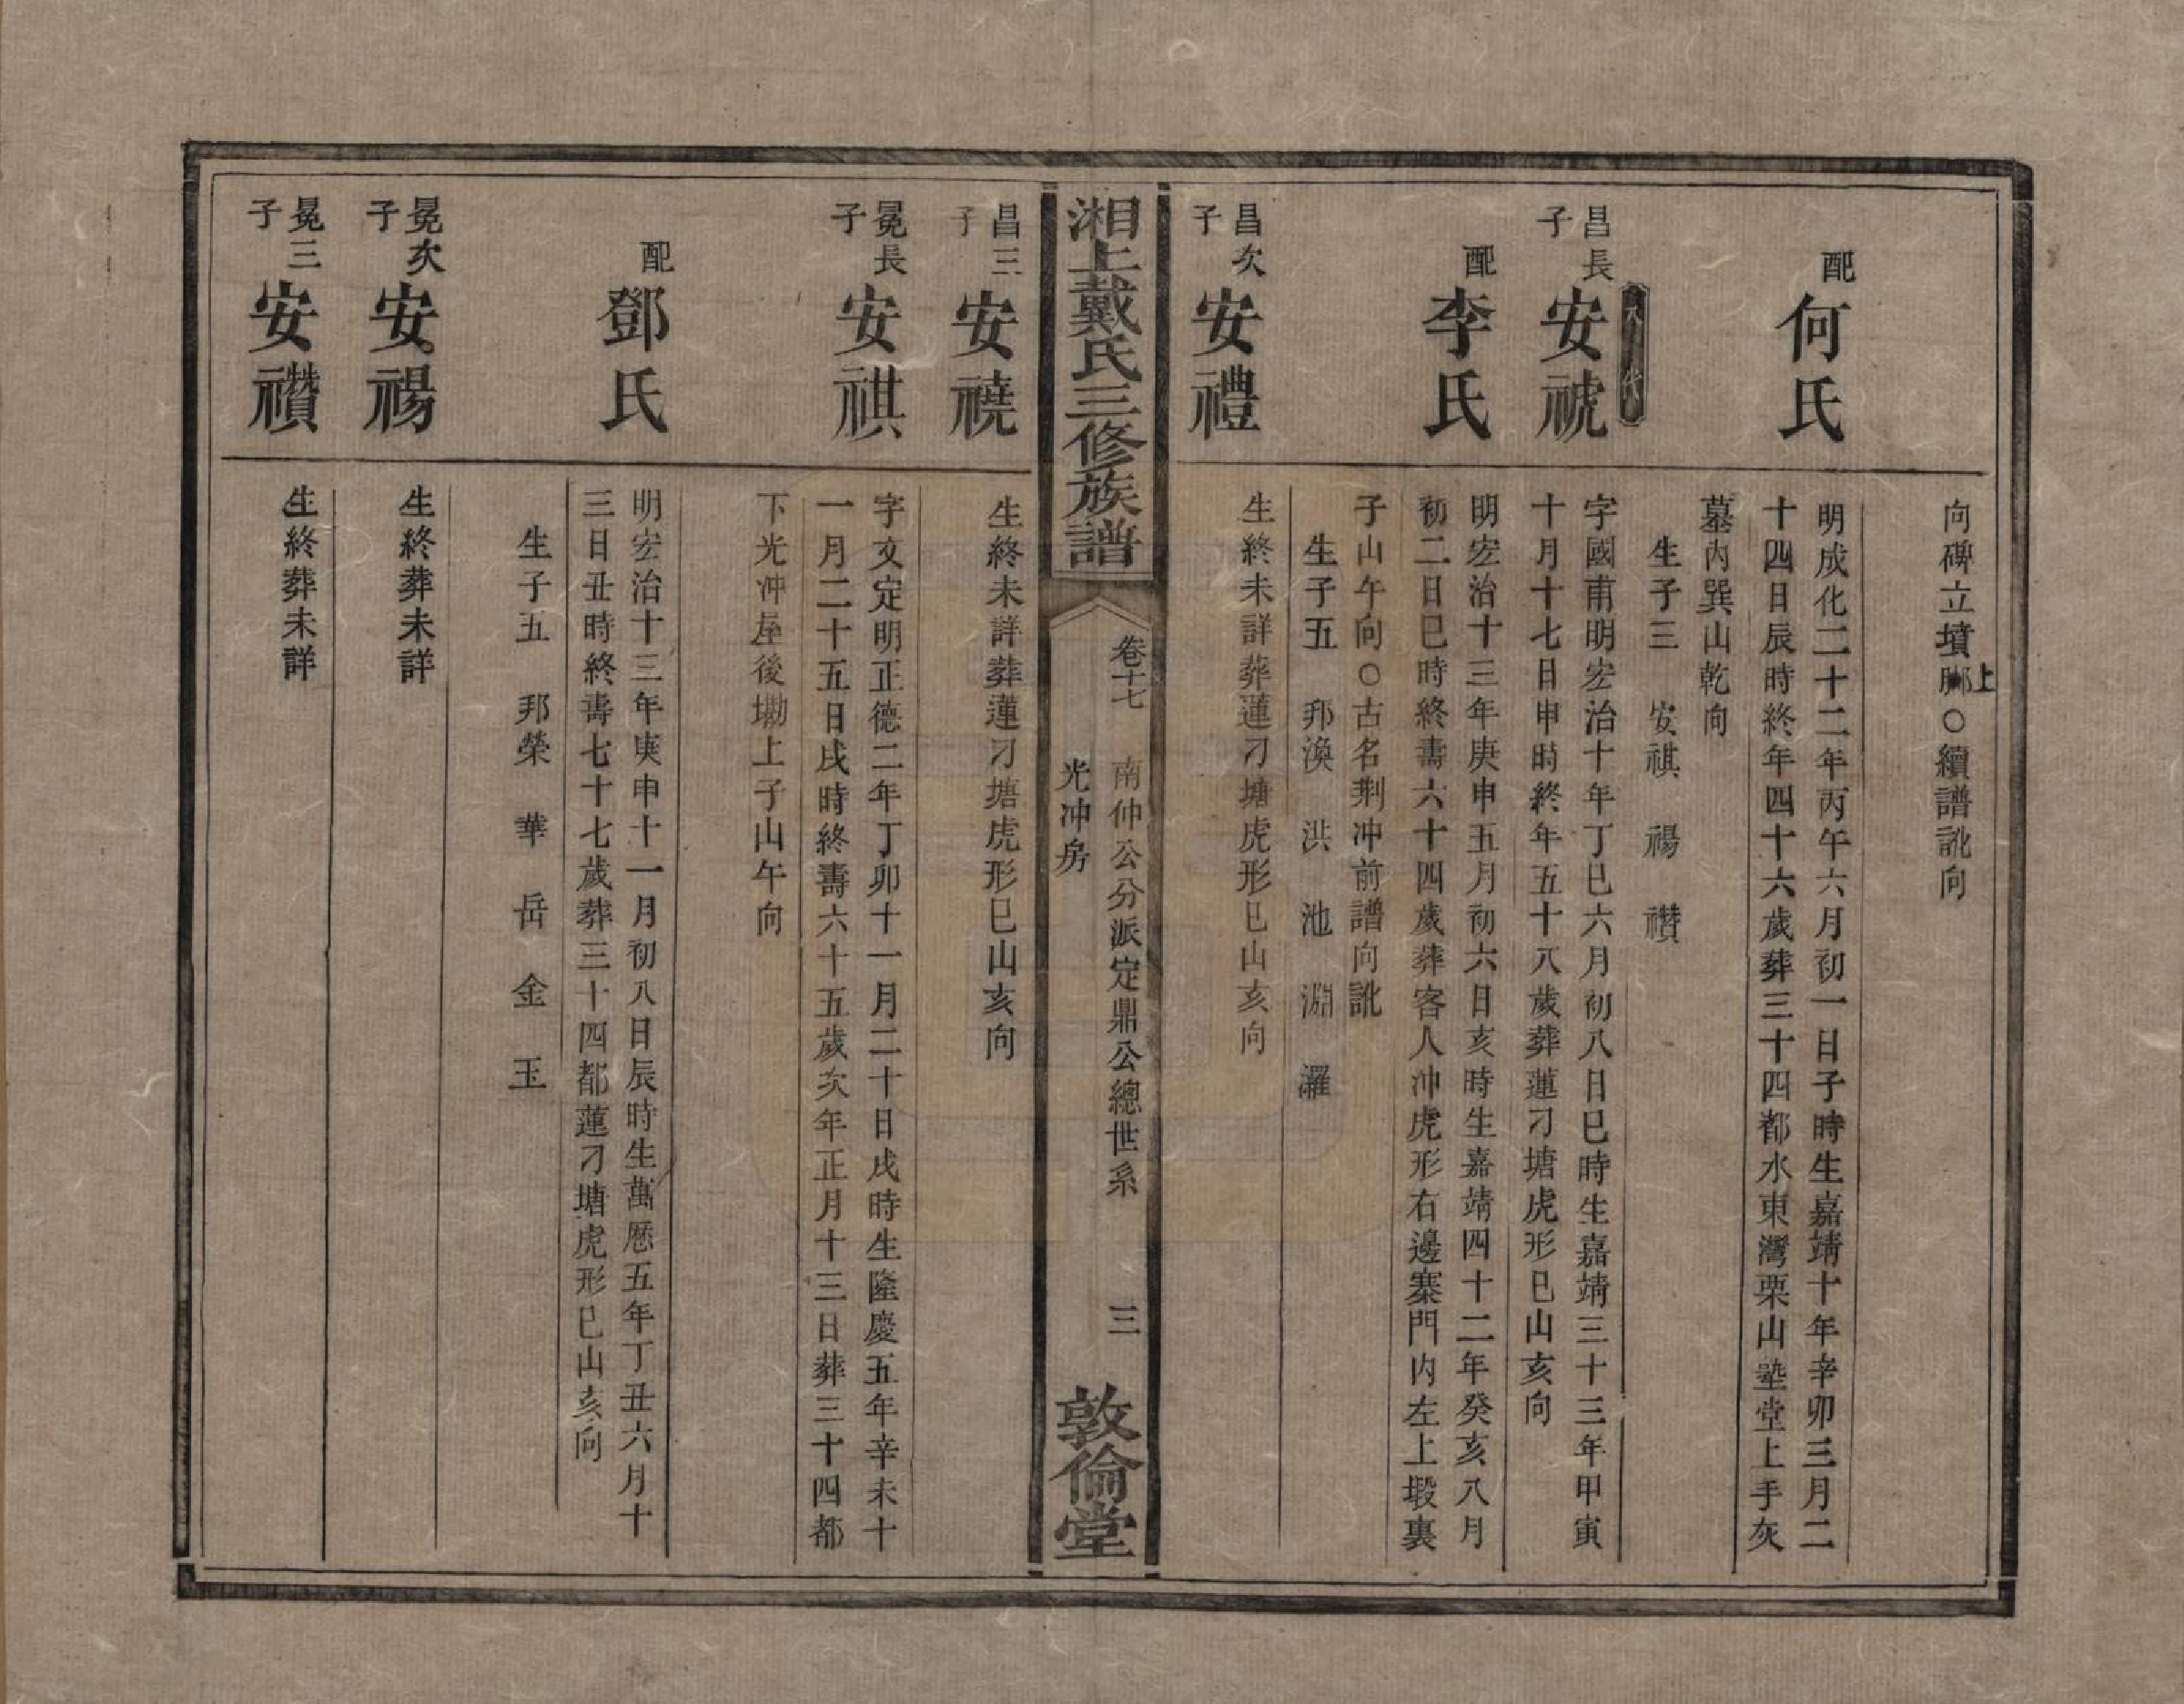 向碑立墳腳上○續譜訛向
配
何氏
明成化二十二年丙午六月初一日子時生嘉靖十年辛卯三月二
十四日辰時終年四十六歲葬三十四都水東灣栗山塾堂上手灰
墓內巽山乾向
生子三 安祺 禓 禶
八 代
昌長
子
安禠
字國甫明宏治十年丁巳六月初八日巳時生嘉靖三十三年甲寅
十月十七日申時終年五十八歲葬蓮刁塘虎形巳山亥向
配
李氏
明宏治十三年庚申五月初六日亥時生嘉靖四十二年癸亥八月
初二日巳時終壽六十四歲葬客人冲虎形右邊寨門内左上塅裏
子山午向○古名荆冲前譜向訛
生子五 邦渙 洪 池 淵 灑
昌次
子
安禮
生終未詳葬蓮刁塘虎形巳山亥向
湘上戴氏三修族譜
卷十七
南仲公分派定鼎公總世系
光冲房
三
敦倫堂
昌三
子
安襓
生終未詳葬蓮刁塘虎形巳山亥向
冕長
子
安祺
字文定明正德二年丁卯十一月二十日戌時生隆慶五年辛未十
一月二十五日戌時終壽六十五歲次年正月十三日葬三十四都
下光冲屋後墈上子山午向
配
鄧氏
明宏治十三年庚申十一月初八日辰時生萬曆五年丁丑六月十
三日丑時終壽七十七歲葬三十四都蓮刁塘虎形巳山亥向
生子五 邦榮 華 岳 金 玉
冕次
子
安禓
生終葬未詳
冕三
子
安禶
生終葬未詳